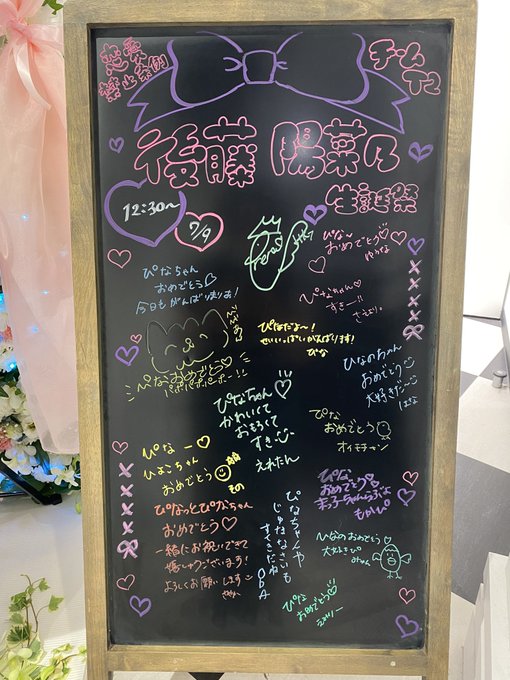 恋愛
禁止条例
チーム
TⅡ
後藤 陽菜乃
生誕祭
12:30〜
7/9
ぴなちゃん
おめでとう♡
今日もがんばりましょう!
ぴな〜
おめでとう♡
ゆうな
ぴなちゃん♡
すきー!!
ぴなだよ〜!
せいいっぱいがんばります!
ぴな
ぴなおめでとう♡
パポパポパポーポー!!
ぴなちゃん♡
かわいくて
おもろくて
すき
えれたん
ひなのちゃん
おめでとう
大好きだー
はな
ぴな
おめでとう
オイモチャン
ぴなー♡
ひよこちゃん
おめでとう
ぴな
おめでとう♡
もかぴ
ぴなっとぴかちゃん
おめでとう♡
一緒にお祝いできて
嬉しゅうございます!
よろしくお願いします
ぴなちゃんや
じゅうななさいも
すてきだね
ODA
ひなのおめでとう♡
大好きぴ
みゅん
ぴな
おめでとう